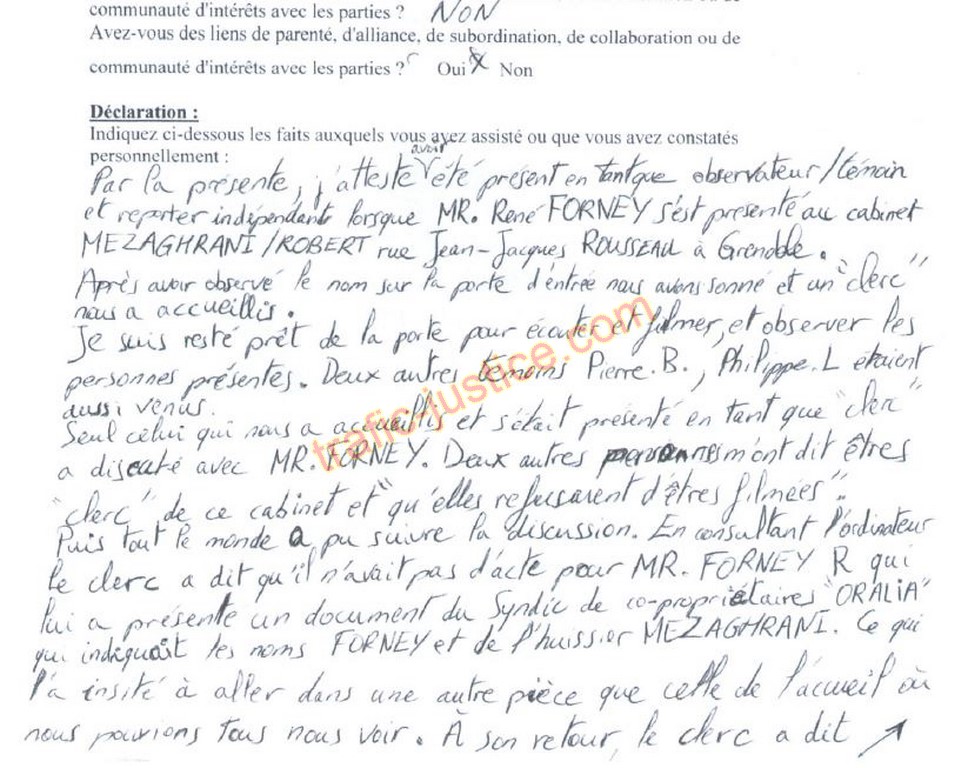 communauté d'intérêts avec les parties ? NON
Avez-vous des liens de parenté, d'alliance, de subordination, de collaboration ou de
communauté d'intérêts avec les parties ? Oui Non
Déclaration :
Indiquez ci-dessous les faits auxquels vous avez assisté ou que vous avez constatés
personnellement :
Par la présente, j'atteste avoir été présent en tantque observateur/témoin
et reporter indépendant lorsque MR. René FORNEY s'est présenté au cabinet
MEZAGHRANI/ROBERT rue Jean-Jacques ROUSSEAU à Grenoble.
Après avoir observé le nom sur la porte d'entrée nous avons sonné et un "clerc"
nous a accueillis.
Je suis resté prêt de la porte pour écouter et filmer, et observer les
personnes présentes. Deux autres témoins Pierre.B., Philippe.L étaient
aussi venus.
Seul celui qui nous a accueillis et s'était présenté en tant que "clerc"
a discuté avec MR. FORNEY. Deux autres personnes m'ont dit êtres
"clerc" de ce cabinet et "qu'elles refusaient d'êtres filmées".
Puis tout le monde a pu suivre la discussion. En consultant l'ordinateur
le clerc a dit qu'il n'avait pas d'acte pour MR. FORNEY R qui
lui a présenté un document du Syndic de co-propriétaires "ORALIA"
qui indiquait les noms FORNEY et de l'huissier MEZAGHRANI. Ce qui
l'a insité à aller dans une autre pièce que celle de l'accueil où
nous pouvions tous nous voir. À son retour, le clerc a dit
trafic-justice.com